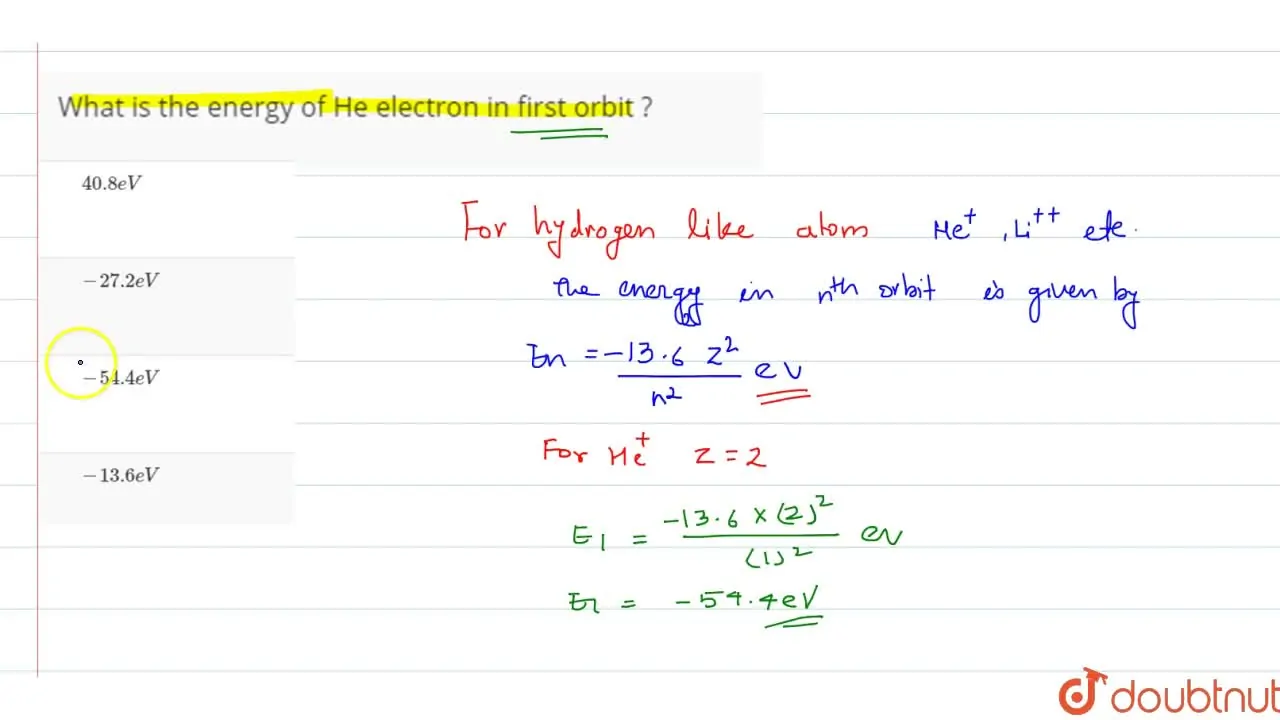 What is the energy of He electron in first orbit ?
40.8eV
−27.2eV
−54.4eV
−13.6eV
For hydrogen like atom He⁺ , Li⁺⁺ etc.
the energy in nth orbit is given by
En = −13.6 Z² / n² eV
For He⁺ Z = 2
E₁ = −13.6 × (2)² / (1)² eV
E₁ = −54.4eV
doubtnut